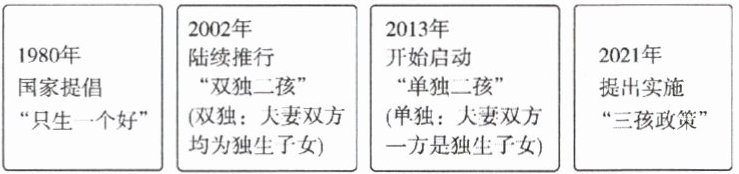 1980年
国家提倡
“只生一个好”
2002年
陆续推行
“双独二孩”
(双独：夫妻双方
均为独生子女)
2013年
开始启动
“单独二孩”
(单独：夫妻双方
一方是独生子女)
2021年
提出实施
“三孩政策”